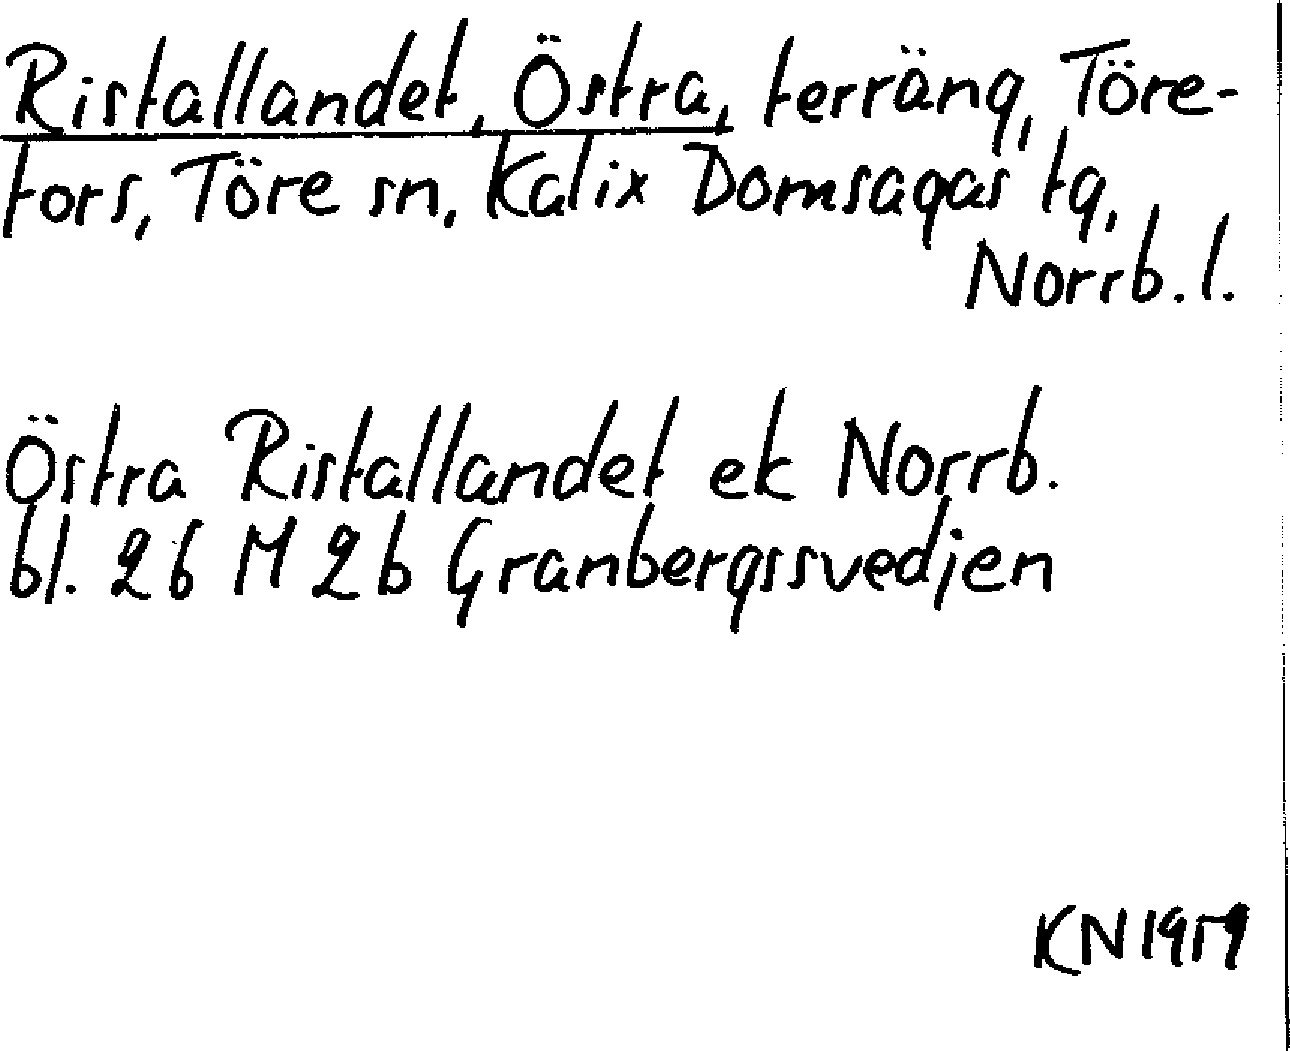 Ristallandet, Östra, terräng, Töre-
fors, Töre sn, Kalix Domsagas tg,
Norrb. l.
Östra Ristallandet ek Norrb.
bl. 26 M 2b Granbergssvedjen
KN 1959